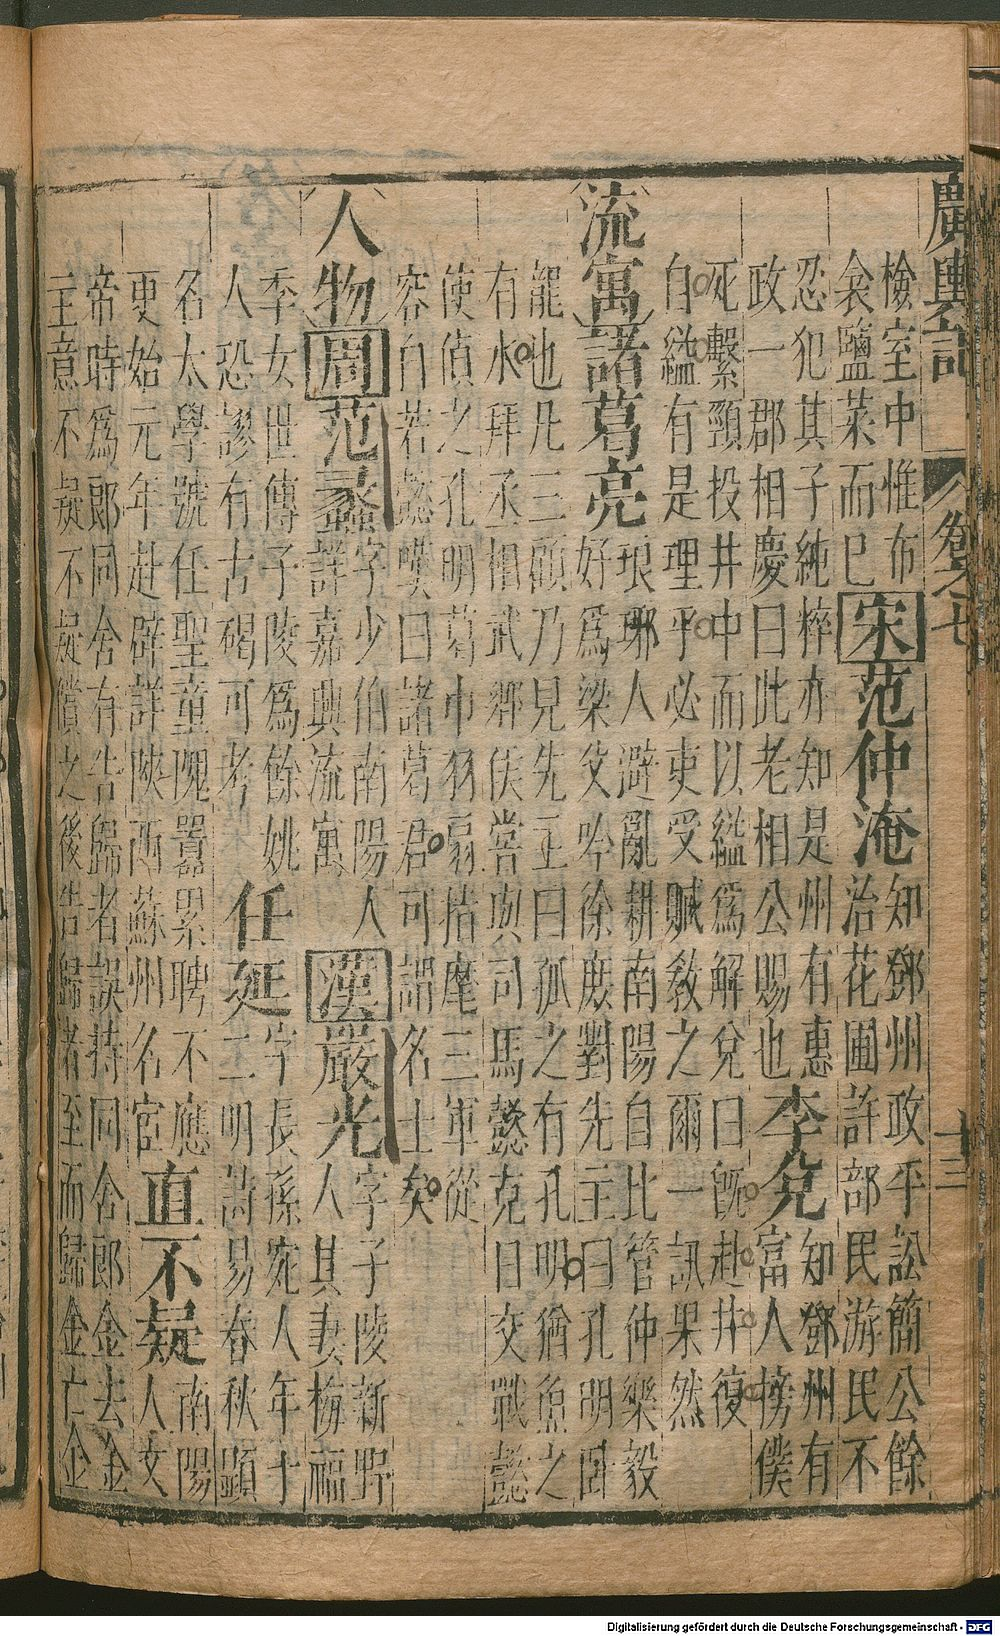 廣輿記 卷之七 十三
檢室中惟布
衾鹽菜而已
宋 范仲淹
知鄧州政平訟簡公餘
治花圃許部民游民不
忍犯其子純粹亦知是州有惠
政一郡相慶曰此老相公賜也
李兌
知鄧州有
富人榜僕
死繫頸投井中而以縊爲解兌曰旣赴井復
自縊有是理乎必吏受賕教之爾一訊果然
流寓 諸葛亮
琅琊人避亂耕南陽自比管仲樂毅
好爲梁父吟徐庶對先主曰孔明臥
龍也凡三顧乃見先主曰孤之有孔明猶魚之
有水拜丞相武鄉侯嘗與司馬懿克日交戰懿
使偵之孔明葛巾羽扇指麾三軍從
容自若懿嘆曰諸葛君可謂名士矣
人物 周 范蠡
字少伯南陽人
詳嘉興流寓
漢 嚴光
字子陵新野
人其妻梅福
季女世傳子陵爲餘姚
人恐謬有古碣可考
任延
字長孫宛人年十
二明詩易春秋顯
名太學號任聖童隗囂累聘不應
更始元年赴辟詳陝西蘇州名宦
直不疑
南陽
人文
帝時爲郎同舍有告歸者誤持同舍郎金去金
主意不疑不疑償之後告歸者至而歸金亡金
Digitalisierung gefördert durch die Deutsche Forschungsgemeinschaft - DFG